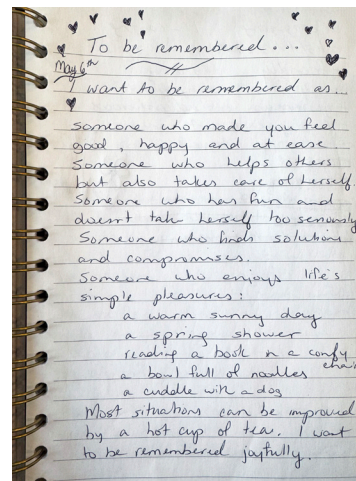 To be remembered...
May 6th
I want to be remembered as...
Someone who made you feel
good, happy and at ease.
Someone who helps others
but also takes care of herself.
Someone who has fun and
doesn't take herself too seriously
Someone who finds solutions
and compromises.
Someone who enjoys life's
simple pleasures:
a warm sunny day
a spring shower
reading a book in a comfy
chair
a bowl full of noodles
a cuddle with a dog
Most situations can be improved
by a hot cup of tea. I want
to be remembered joyfully.